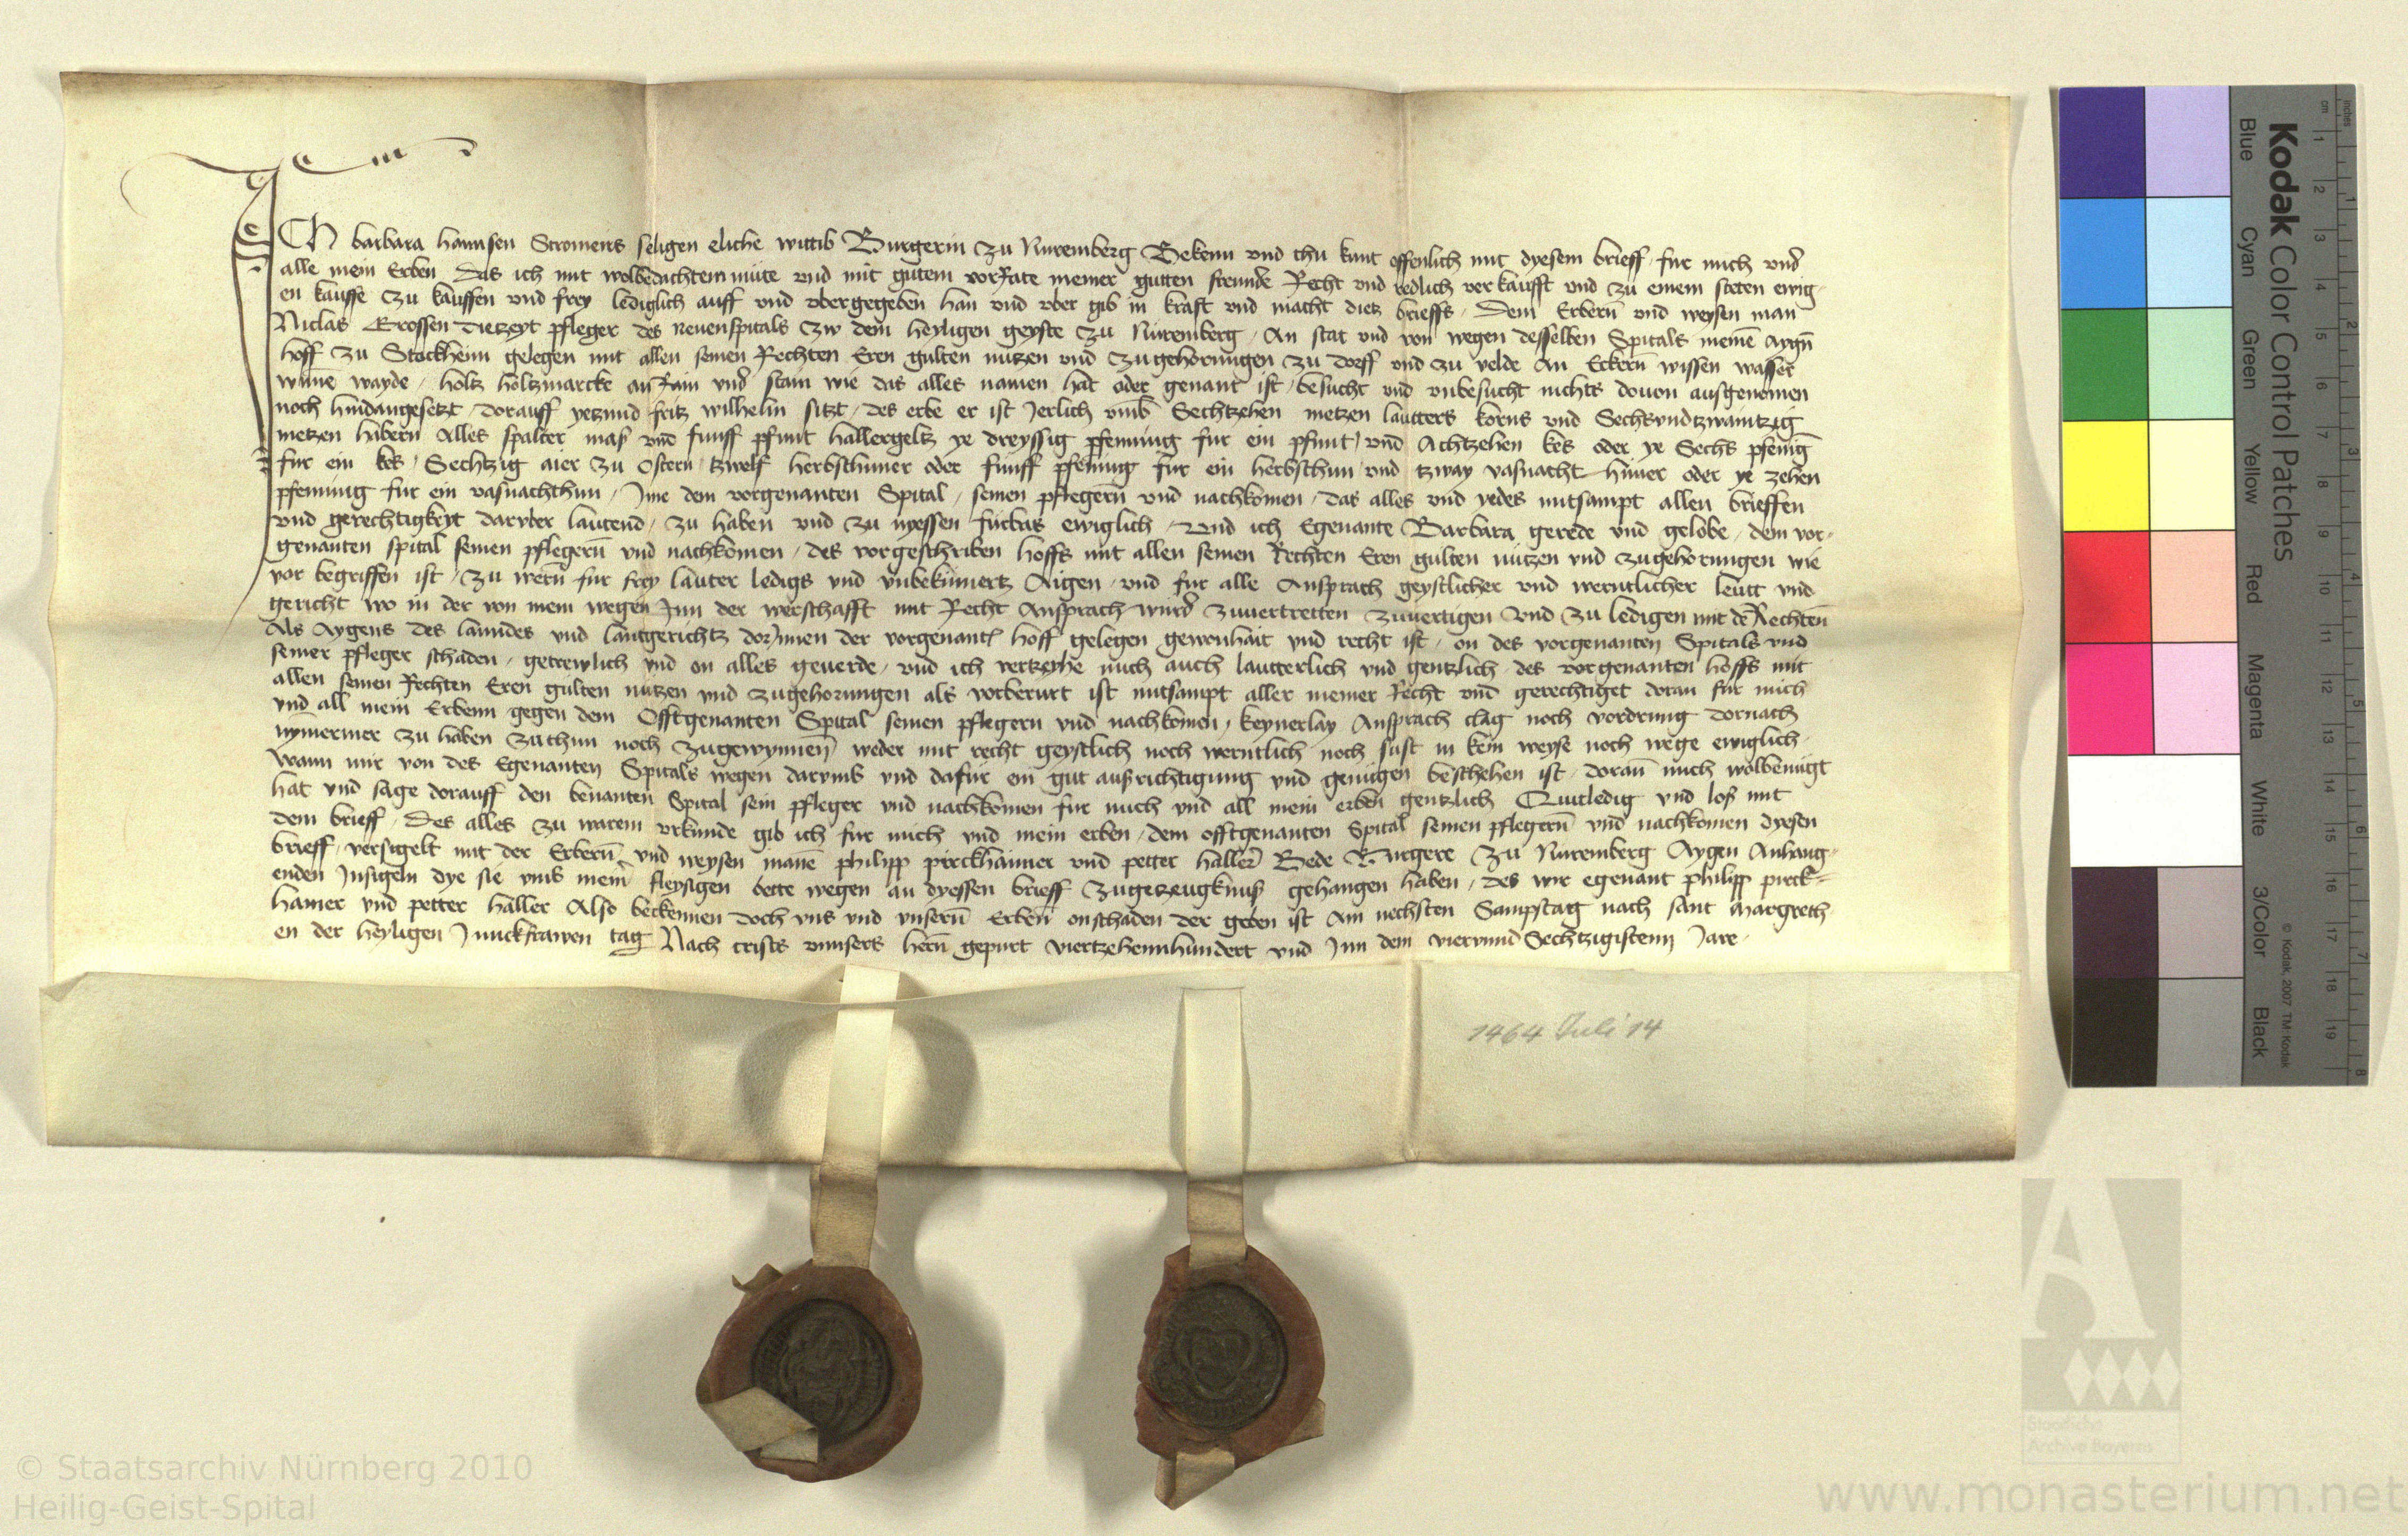 ICH barbara hannsen Stromeirs seligen eliche wittib Burgerin zu Nuremberg Bekenn vnd thu kunt offenlich mit dyesem brieff fur mich vnd
alle mein Erben Das ich mit wolbedachtem mute vnd mit gutem vorRate meiner gutten freunde Recht vnd redlich verkaufft vnd zu einem steten ewig-
en kauffe zu kauffen vnd frey lediglich auff vnd vbergegeben han vnd vber gib in kraft vnd macht dietz brieffs Dem Erbern vnd weysen man
Niclas Grossen dietzeyt pfleger des neuenspitals zw dem heyligen geyste zu Nuremberg An stat vnd von wegen desselben Spitals meinē aygn̄
hoff zu Stockheim gelegen mit allen seinen Rechten Eren gulten nutzen vnd zugehorungen zu dorff vnd zu velde an Eckern̄ wissen wasser
wūnē wayde holtz holtzmarcke an Rain vnd stain wie das alles namen hat oder genant ist besucht vnd vnbesucht nichts douon ausgenomen
noch hindangesetzt dorauff yetzund fritz wilhelm sitzt des erbe er ist Jerlich vmb Sechtzehen metzen lautters korns vnd Sechsvndtzwaintzig
metzen habern Alles spalter mas vnd funff pfunt hallergeltz ye dreyssig pfenning fur ein pfunt vnd Achtzehen kes oder ye Sechs pfenīg
fur ein kes Sechtzig aier zu Ostern tzwelf herbsthuner oder funff pfening fur ein herbsthun vnd tzway vasnacht huner oder ye zehen
pfenning fur ein vasnachthun Ime dem vorgenanten Spital seinen pflegern̄ vnd nachkomen das alles vnd yedes mitsampt allen brieffen
vnd gerechtigkeyt daruber lautend zu haben vnd zu nyessen furbas ewiglich Vnd ich Egenante Barbara gerede vnd gelobe dem vor-
genanten spital seinen pflegern̄ vnd nachkomen des vorgeschriben hoffs mit allen seinen Rechten Eren gulten nutzen vnd zugehorungen wie
vor begriffen ist zu wern̄ fur frey lauter ledigs vnd vnbekumertz Aigen vnd fur alle Ansprach geystlicher vnd werntlicher leutt vnd
gericht wo in der von mein wegen Inn der werschafft mit Recht Ansprach wurd zuuertretten zuuertigen vnd zu ledigen mit dē Rechten
Als Aygens des lanndes vnd lantgerichtz dorJnnen der vorgenant hoff gelegen gewonhait vnd recht ist on des vorgenanten Spitals vnd
seiner pfleger schaden getrewlich vnd on alles geuerde vnd ich vertzeyhe mich auch lautterlich vnd gentzlich des vorgenanten hoffs mit
allen seinen Rechten Eren gulten nutzen vnd zugehorungen als vorberurt ist mitsampt aller meiner Recht vnd gerechtiget doran fur mich
vnd all mein Erbenn gegen dem Offtgenanten Spital seinen pflegern vnd nachkomen keynerlay Ansprach clag noch vordrung dornach
nymermer zu haben zuthun noch zugewynnen weder mit recht geystlich noch werntlich noch sust in kein weyse noch wege ewiglich
Wann mir von des Egenanten Spitals wegen darvmb vnd dafur ein gut außrichtigung vnd genugen beschehen ist doran mich wolbenugt
hat vnd sage dorauff den benanten Spital sein pfleger vnd nachkomen fur mich vnd all mein erben gentzlich Quitledig vnd loß mit
dem brieff Des alles zu warem vrkunde gib ich fur mich vnd mein erben dem offtgenanten Spital seinen pflegern̄ vnd nachkomen dyesen
brieff versigelt mit der Erbern̄ vnd weysen manē philipp pirckhaimer vnd petter haller Bede Burgere zu Nuremberg Aygen Anhang-
enden Insigeln dye sie vmb meinr fleysigen bette wegen an dyessen brieff zugetzeugknuß gehangen haben des wir egenant philipp pirck-
hamer vnd petter haller Also beckennen doch vns vnd vnsern̄ Erben onschaden der geben ist Am nechsten Sampstag nach sant margreth
en der heyligen Junckfrawen tag Nach crists vnnsers hern̄ gepurt viertzehennhundert vnd Jnn dem viervnnd Sechtzigistenn Jare
1464 Juli 14
Kodak Color Control Patches
Blue Cyan Green Yellow Red Magenta White 3/Color Black
© Kodak, 2007 TM: Kodak
cm 1 2 3 4 5 6 7 8 9 10 11 12 13 14 15 16 17 18 19
inches 1 2 3 4 5 6 7 8
Staatliche
Archive Bayerns
© Staatsarchiv Nürnberg 2010
Heilig-Geist-Spital
www.monasterium.net